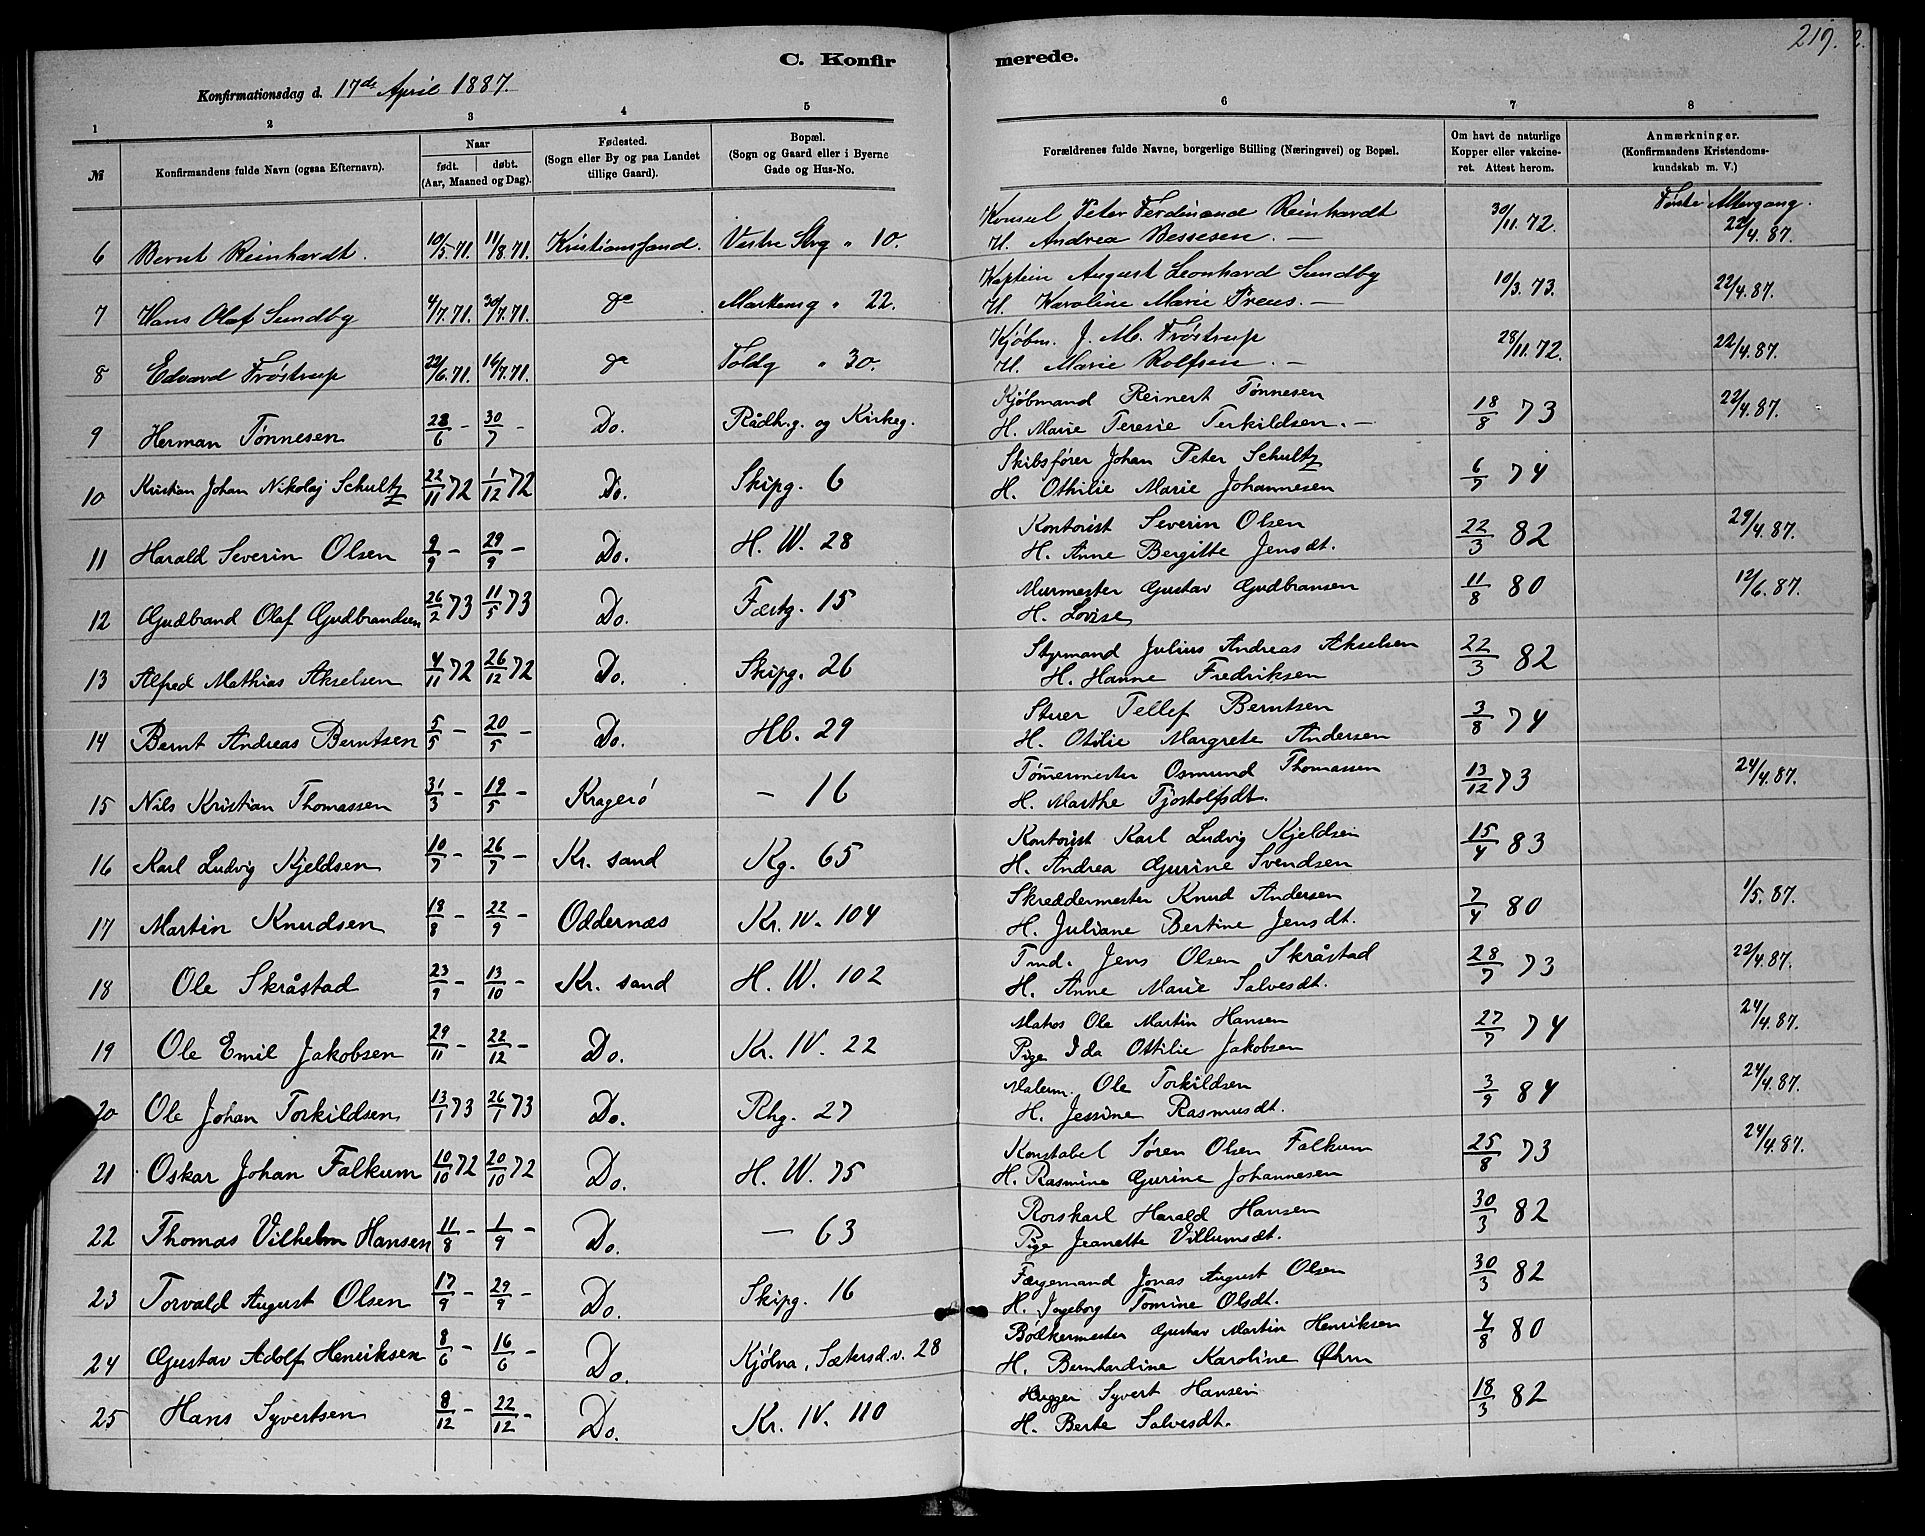 219.
C. Konfirmerede.
Konfirmationsdag d. 17de April 1887.
1 2 3 4 5 6 7 8
№ Konfirmandens fulde Navn (ogsaa Efternavn). Naar født. døbt. (Aar, Maaned og Dag). Fødested. (Sogn eller By og paa Landet tillige Gaard). Bopæl. (Sogn og Gaard eller i Byerne Gade og Hus-No. Forældrenes fulde Navne, borgerlige Stilling (Næringsvei) og Bopæl. Om havt de naturlige Kopper eller vakcineret. Attest herom. Anmærkninger. (Konfirmandens Kristendomskundskab m. V.)
Konsul Peter Ferdinand Reinhardt 30/11.72. Første Altergang.
6 Bernt Reinhardt. 10/5.71. 11/8.71. Kristianssand. Vestre Strg " 10. H. Andrea Bessesen. — 22/4.87.
Kaptein August Leonhard Sundby
7 Hans Olaf Sundby 4/7.71. 30/7.71. do Markensg " 22. H. Karoline Marie Preus. — 10/3.73. 22/4.87.
Kjøbm. J. M. Frøstrup
8 Edvard Frøstrup 22/6.71. 16/7.71. do Toldg " 30. H. Marie Rolfsen. — 28/11.72. 22/4.87.
Kjøbmand Reinert Tønnesen
9 Herman Tønnesen 28/6 - 30/7 - Do. Rådh.g. og Kirkeg. H. Marie Teresie Terkildsen. — 18/8 73 22/4.87.
Skibsfører Johan Peter Schultz
10 Kristian Johan Nikolaj Schultz 22/11 72 1/12 72 Do. Skipg. 6 H. Othilie Marie Johannesen 6/7 74
Kontorist Severin Olsen
11 Harald Severin Olsen 9/9 - 29/9 - Do. H. W. 28 H. Anne Bergitte Jensdt. 22/3 82 29/4.87.
Murmester Gustav Gudbransen
12 Gudbrand Olaf Gudbrandsen 26/2 73 11/5 73 Do. Fæstg. 15 H. Lovise 11/8 80 12/6.87.
Styrmand Julius Andreas Akselsen
13 Alfred Mathias Akselsen 4/11 72 26/12 72 Do. Skipg. 26 H. Hanne Fredriksen 22/3 82
Sturer Tellef Berntsen
14 Bernt Andreas Berntsen 5/5 - 20/5 - Do. Hb. 29 H. Otilie Margrete Andersen 3/8 74
Tømermester Osmund Thomassen
15 Nils Kristian Thomassen 31/3 - 19/5 - Kragerø — 16 H. Marthe Tjostolfsdt. 13/12 73 24/4.87.
Kontorist Karl Ludvig Kjeldsen
16 Karl Ludvig Kjeldsen 10/7 - 26/7 - Kr. sand Kg. 65 H. Andrea Gurine Svendsen 15/4 83
Skreddermester Knud Andersen
17 Martin Knudsen 18/8 - 22/9 - Oddernæs Kr. IV. 104 H. Juliane Bertine Jensdt. 7/4 80 1/5.87.
Tmd. Jens Olsen Skråstad
18 Ole Skråstad 23/9 - 13/10 - Kr. sand H. W. 102 H. Anne Marie Salvesdt. 28/7 73 22/4.87.
Matros Ole Martin Hansen
19 Ole Emil Jakobsen 29/11 - 22/12 - Do. Kr. IV. 22 Pige Ida Ottilie Jakobsen 27/7 74 24/4.87.
Malerm. Ole Torkildsen
20 Ole Johan Torkildsen 13/1 73 26/1 73 Do. Rhg. 27 H. Jessine Rasmusdt. 3/9 84 24/4.87.
Konstabel Søren Olsen Falkum
21 Oskar Johan Falkum 10/10 72 20/10 72 Do. H. W. 75 H. Rasmine Gurine Johannesen 25/8 73 24/4.87.
Rorskarl Harald Hansen
22 Thomas Vilhelm Hansen 11/8 - 1/9 - Do. — 63 Pige Jeanette Villumsdt. 30/3 82
Færgemand Jonas August Olsen
23 Torvald August Olsen 17/9 - 29/9 - Do. Skipg. 16 H. Ingeborg Tomine Olsdt. 30/3 82
Bødkermester Gustav Martin Henriksen
24 Gustav Adolf Henriksen 8/6 - 16/6 - Do. Kjølna, Sætersd.v. 28 H. Bernhardine Karoline Ohrn 4/8 80
Hugger Syvert Hansen
25 Hans Syvertsen 8/12 - 22/12 - Do. Kr. IV. 110 H. Berte Salvesdt. 18/3 82